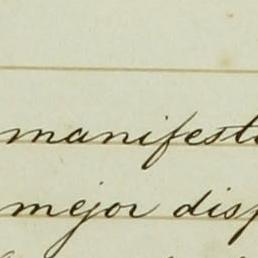 manifest
mejor disp